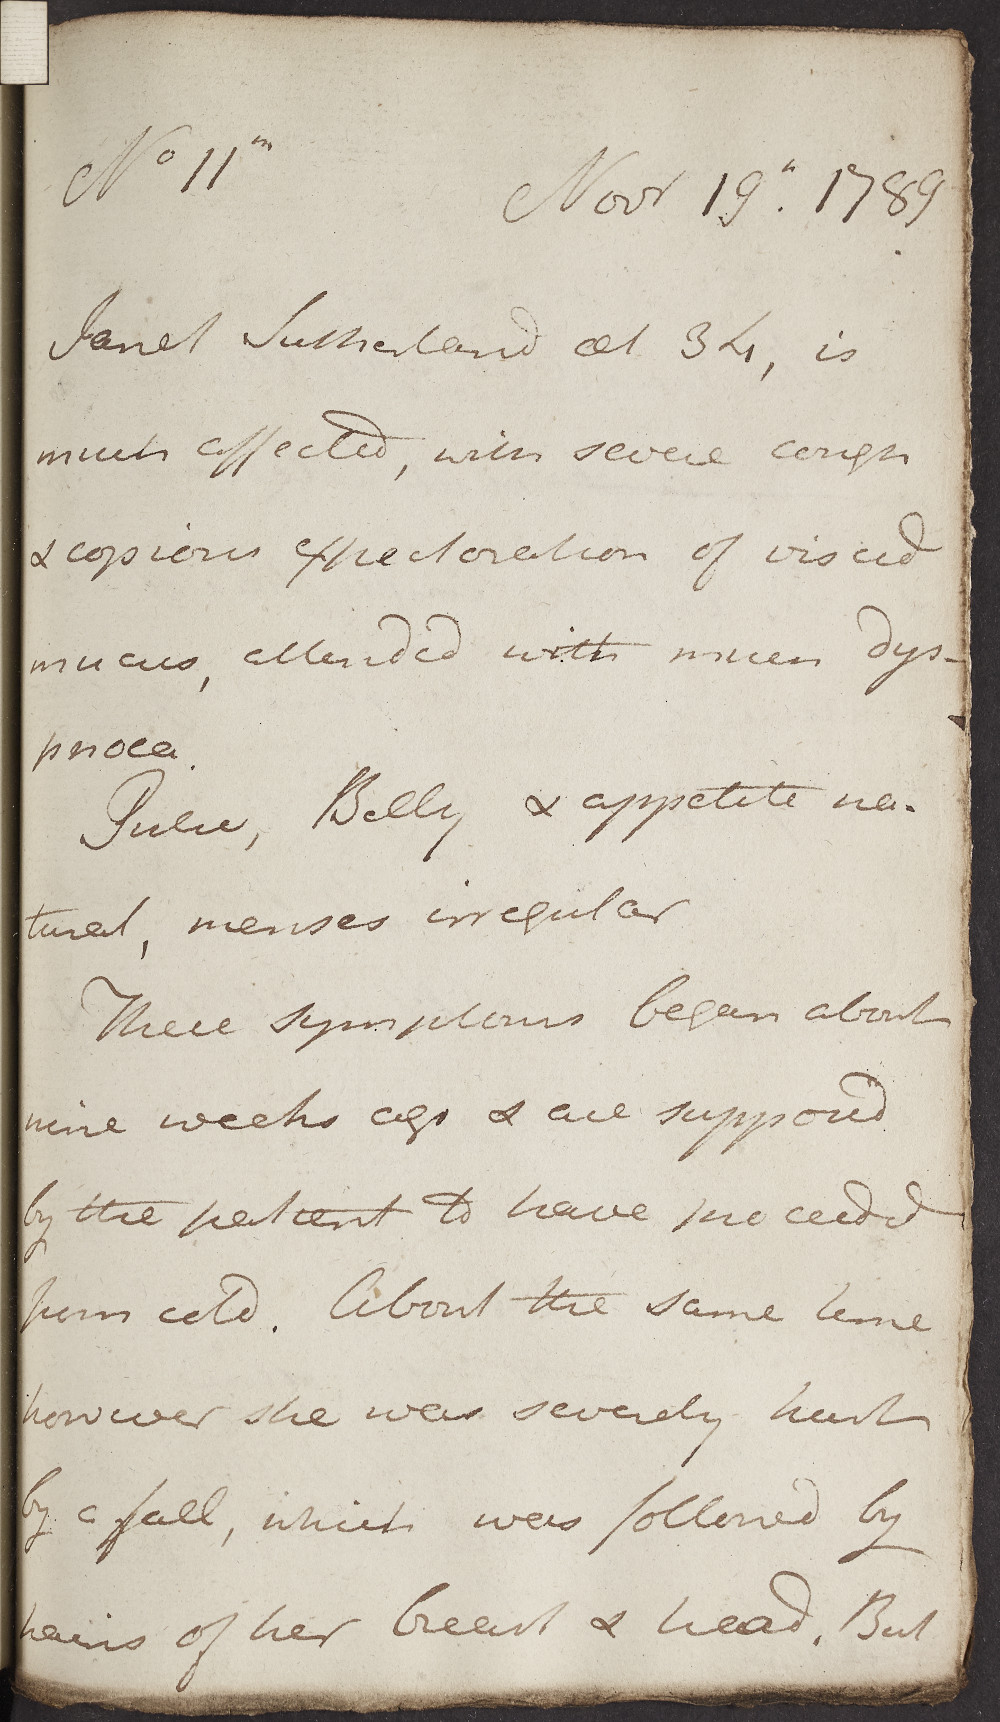 No 11m
Novr 19h. 1789
Janet Sutherland æt 34, is
much affected, with severe cough
& copious expectoration of viscid
mucus, attended with much dys-
pnoea.
Pulse, Belly & appetite na-
tural, menses irregular
These symptoms began about
nine weeks ago & are supposed
by the patient to have proceeded
from cold. About the same time
however she was severely hurt
by a fall, which was followed by
pains of her breast & head. But